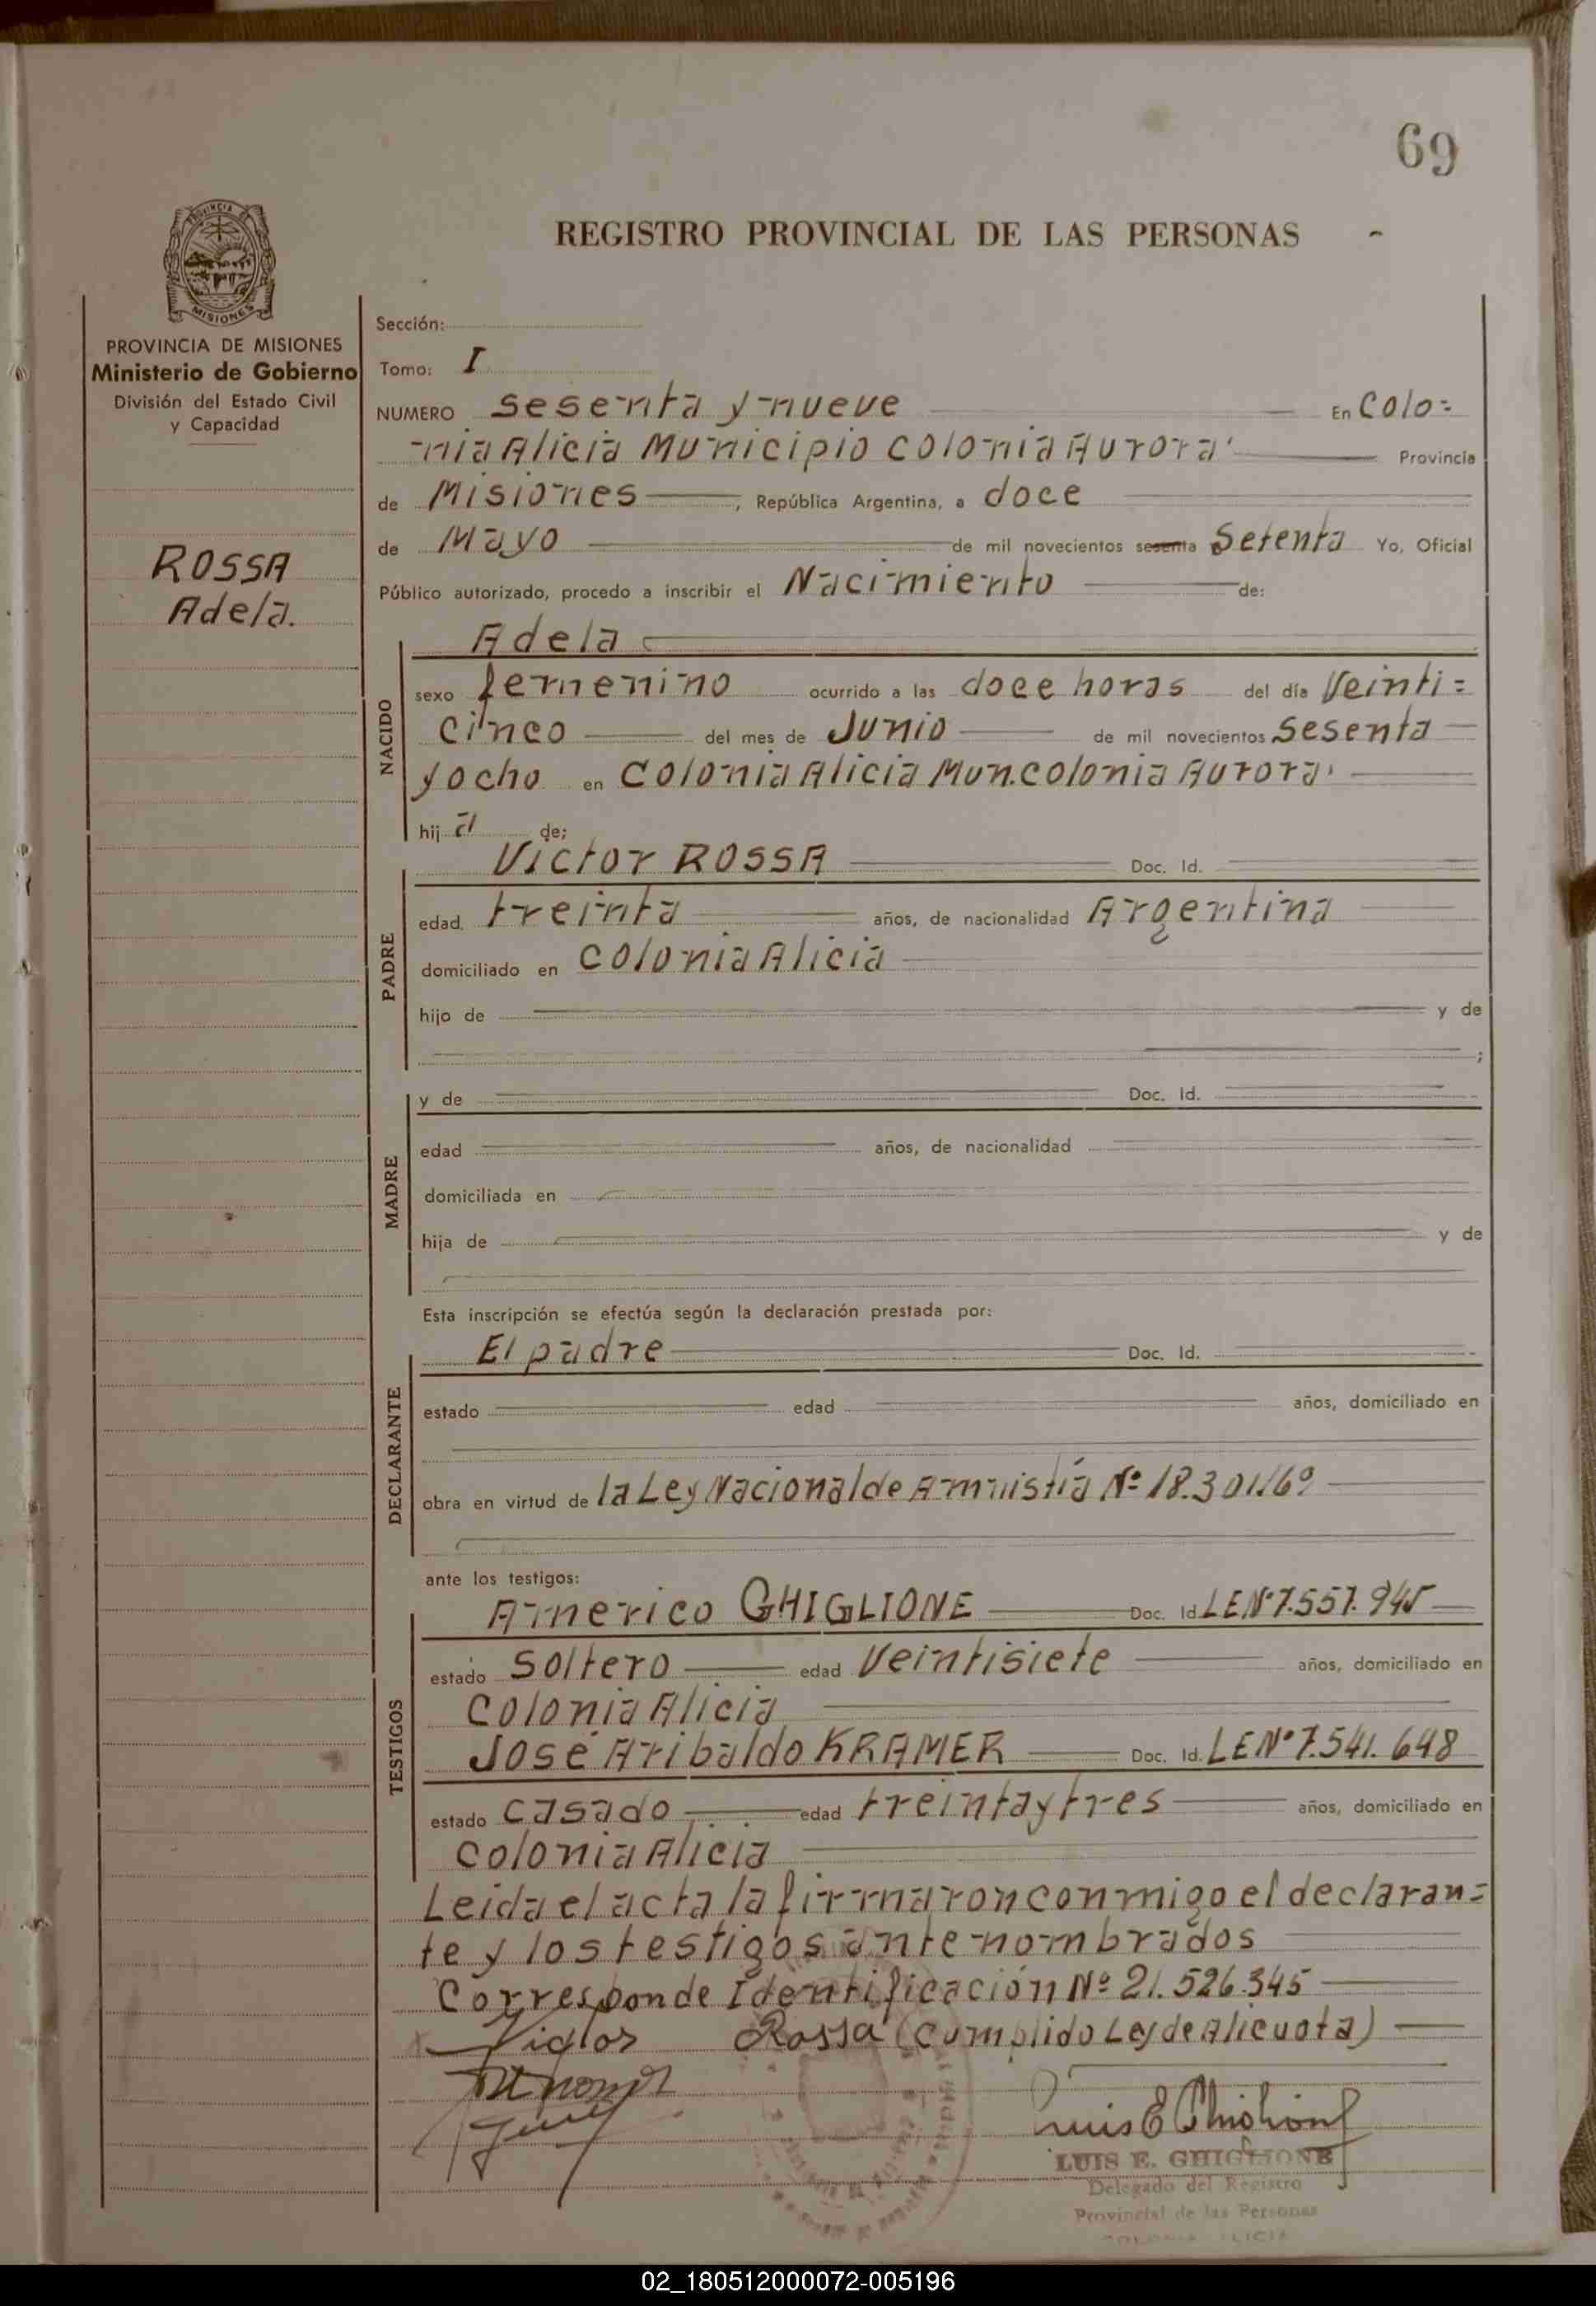 69
REGISTRO PROVINCIAL DE LAS PERSONAS
PROVINCIA DE
MISIONES
PROVINCIA DE MISIONES
Ministerio de Gobierno
División del Estado Civil
y Capacidad
ROSSA
Adela.
Sección:
Tomo: I
NUMERO sesenta y nueve En Colo=
nia Alicia Municipio Colonia Aurora Provincia
de Misiones, República Argentina, a doce
de Mayo de mil novecientos sesenta Setenta Yo, Oficial
Público autorizado, procedo a inscribir el Nacimiento de:
NACIDO
Adela
sexo femenino ocurrido a las doce horas del día Veinti=
cinco del mes de Junio de mil novecientos Sesenta
y ocho en Colonia Alicia Mun. Colonia Aurora
hija de;
PADRE
Victor ROSSA Doc. Id.
edad. treinta años, de nacionalidad Argentina
domiciliado en Colonia Alicia
hijo de y de
;
MADRE
y de Doc. Id.
edad años, de nacionalidad
domiciliada en
hija de y de
Esta inscripción se efectúa según la declaración prestada por:
DECLARANTE
El padre Doc. Id.
estado edad años, domiciliado en
obra en virtud de la Ley Nacional de Amnistía Nº 18.301/69
ante los testigos:
TESTIGOS
Americo GHIGLIONE Doc. Id. LENº 7.557.945
estado Soltero edad Veintisiete años, domiciliado en
Colonia Alicia
José Aribaldo KRAMER Doc. Id. LENº 7.541.648
estado casado edad treinta y tres años, domiciliado en
Colonia Alicia
Leida el acta la firmaron conmigo el declaran=
te y los testigos ante nombrados
Corresponde Identificación Nº 21.526.345
Victor Rossa (Cumplido Ley de Alicuota)
Luis E Ghiglione
LUIS E. GHIGLIONE
Delegado del Registro
Provincial de las Personas
COLONIA ALICIA
02_180512000072-005196